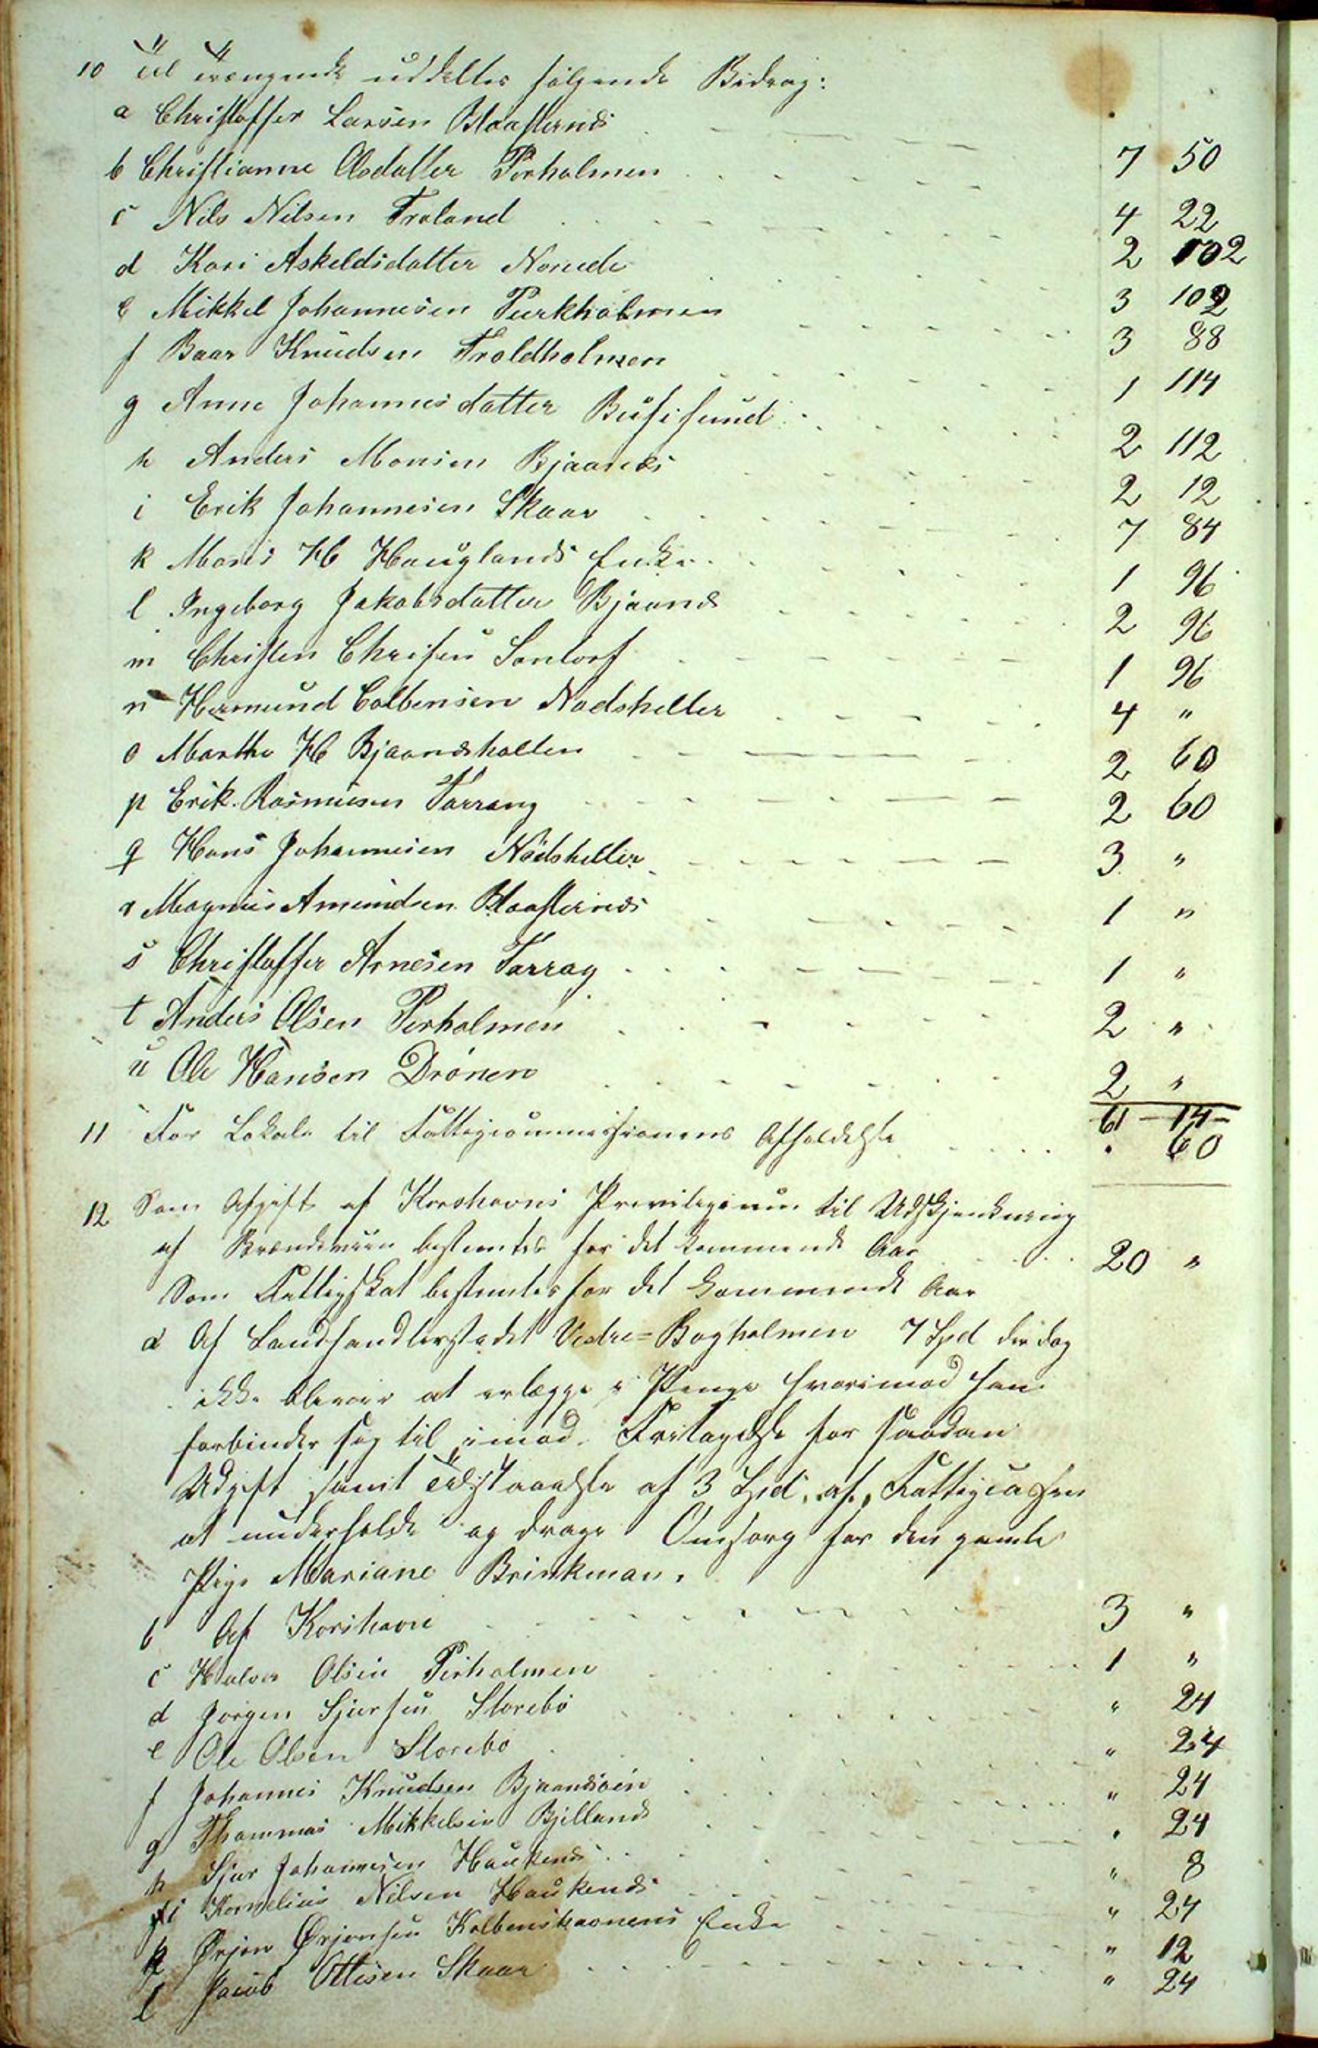 10 Til Trængende uddeltes følgende Bidrag:
a Christoffer Larsen Blaasternæs 7 50
b Christianne Olsdatter Perholmen 4 22
c Nils Nilsen Troland 2 102
d Kari Askeldsdatter Norude 3 102
e Mikkel Johannesen Purkholmen 3 88
f Baar Knudsen Troldholmen 1 114
g Anne Johannesdatter Busesund 2 112
h Anders Monsen Bjaanæs 2 12
i Erik Johannesen Skaar 7 84
k Mons H Hauglands Enke 1 96
l Ingeborg Jakobsdatter Bjaanæs 2 96
m Christen Chrisen Santorf 1 96
n Hermund Colbensen Nodsheller 4 "
o Marthe H Bjaanæshollen 2 60
p Erik Rasmusen Tarrang 2 60
q Hans Johannesen Nødsheller 3 "
r Magnus Amundsen Blaasternæs 1 "
s Christoffer Arnesen Tarrag 1 "
t Anders Olsen Perholmen 2 "
u Ole Hansen Drønen 2 "
61 - 14 -
11 For Lokale til Fattigcommissionens Afholdelse . 60
12 Som Afgift af Korshavns Privilegium til Udskjenkning
af Brændeviin bestemtes for det kommende Aar 20 "
Som Fattigskat bestemtes for det kommende Aar
a Af Landhandlerstedet Vedre=Bagholmen 7 Spd der dog
ikke bliver at erlægge i Penge hvorimod han
forbinder sig til imod Fritagelse for saadan
Udgift samt Tilstaaelse af 3 Spd. af Fattigcassen
at underholde og drage Omsorg for den gamle
Pige Mariane Brinkman.
b Af Korshavn 3 "
c Halvor Olsen Perholmen 1 "
d Jørgen Sjursen Storebø " 24
e Ole Olsen Storebø " 24
f Johannes Knudsen Bjaanæsøen " 24
g Thommas Mikkelsen Bjelland . 24
h Sjur Johannesen Haukenæs " 8
i Kornelius Nilsen Haukenæs " 24
k Ørjan Ørjansen Kolbenshavnens Enke " 12
l Jacob Ottesen Skaar " 24